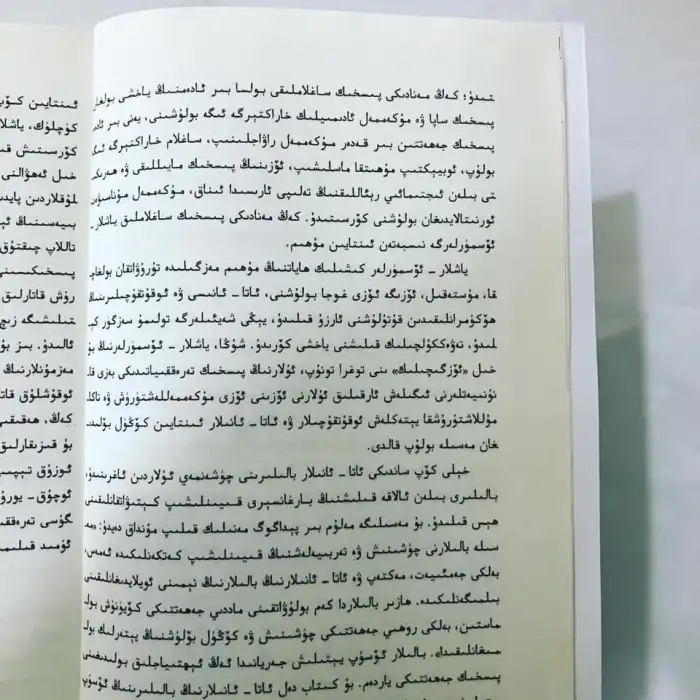 تىدۇ؛ كەڭ مەنادىكى پىسخىك ساغلاملىقى بولسا بىر ئادەمنىڭ ياخشى بولغان
پىسخىك ساپا ۋە مۇكەممەل ئادىمىيلىك خاراكتېرگە ئىگە بولۇشىنى، يەنى بىر ئادەم
پىسخىك جەھەتتىن بىر قەدەر مۇكەممەل راۋاجلىنىپ، ساغلام خاراكتېرگە ئىگە
بولۇپ، ئوبيېكتىپ مۇھىتقا ماسلىشىپ، ئۆزىنىڭ پىسخىك مايىللىقى ۋە ھەرىكى
تى بىلەن ئىجتىمائىي رېئاللىقنىڭ تەلىپى ئارىسىدا ئىناق، مۇكەممەل مۇناسىۋەت
ئورنىتالايدىغان بولۇشنى كۆرسىتىدۇ. كەڭ مەنادىكى پىسخىك ساغلاملىق ياشلار ـ
ئۆسمۈرلەرگە نىسبەتەن ئىنتايىن مۇھىم.
ياشلار ـ ئۆسمۈرلەر كىشىلىك ھاياتنىڭ مۇھىم مەزگىلىدە تۇرۇۋاتقان بولغاچ
قا، مۇستەقىل، ئۆزىگە ئۆزى غوجا بولۇشنى، ئاتا ـ ئانىسى ۋە ئوقۇتقۇچىلىرىنىڭ
ھۆكۈمرانلىقىدىن قۇتۇلۇشنى ئارزۇ قىلىدۇ، يېڭى شەيئىلەرگە تولىمۇ سەزگۈر كې
لىدۇ، تەۋەككۈلچىلىك قىلىشنى ياخشى كۆرىدۇ. شۇڭا، ياشلار ـ ئۆسمۈرلەرنىڭ بۇ
خىل «ئۆزگىچىلىك» ىنى توغرا تونۇپ، ئۇلارنىڭ پىسخىك تەرەققىياتىدىكى بەزى قا
نۇنىيەتلەرنى ئىگىلەش ئارقىلىق ئۇلارنى ئۆزىنى ئۆزى مۇكەممەللەشتۈرۈش ۋە تاكا
مۇللاشتۇرۇشقا يېتەكلەش ئوقۇتقۇچىلار ۋە ئاتا ـ ئانىلار ئىنتايىن كۆڭۈل بۆلىدى
غان مەسىلە بولۇپ قالدى.
خېلى كۆپ ساندىكى ئاتا ـ ئانىلار بالىلىرىنى چۈشەنمەي ئۇلاردىن ئاغرىنىدۇ،
بالىلىرى بىلەن ئالاقە قىلىشنىڭ بارغانسېرى قىيىنلىشىپ كېتىۋاتقانلىقىنى
ھېس قىلىدۇ. بۇ مەسىلىگە مەلۇم بىر پېداگوگ مەنىلىك قىلىپ مۇنداق دەيدۇ: «مە
سىلە بالىلارنى چۈشىنىش ۋە تەربىيەلەشنىڭ قىيىنلىشىپ كەتكەنلىكىدە ئەمەس،
بەلكى جەمئىيەت، مەكتەپ ۋە ئاتا ـ ئانىلارنىڭ بالىلارنىڭ نېمىنى ئويلايدىغانلىقىنى
بىلمىگەنلىكىدە. ھازىر بالىلاردا كەم بولۇۋاتقىنى ماددىي جەھەتتىكى كۆيۈنۈش بول
ماستىن، بەلكى روھىي جەھەتتىكى چۈشىنىش ۋە كۆڭۈل بۆلۈشنىڭ يېتەرلىك بول
مىغانلىقىدا». بالىلار ئۆسۈپ يېتىلىش جەريانىدا ئەڭ ئېھتىياجلىق بولىدىغىنى
پىسخىك جەھەتتىكى ياردەم. بۇ كىتاب دەل ئاتا ـ ئانىلارنىڭ بالىلىرىنىڭ ئۆسۈپ
ئىنتايىن كۆپ
كۈچلۈك، ياشلا
كۆرسىتىش قى
خىل ئەھۋالنى
لۇقلاردىن پايدى
تاللاپ چىقتۇق
پىسخىكىسىنى
رۇش قاتارلىق
ئالىدۇ. بىز بۇ
مەزمۇنلارنىڭ
ئوقۇشلۇق قاتا
كەڭ، ھەقىقىي
بۇ قىزىقارلىق
ئوزۇق تېپىپ
ئوچۇق ـ يورۇ
گۈسى تەرەققى
ئۈمىد قىلىمى